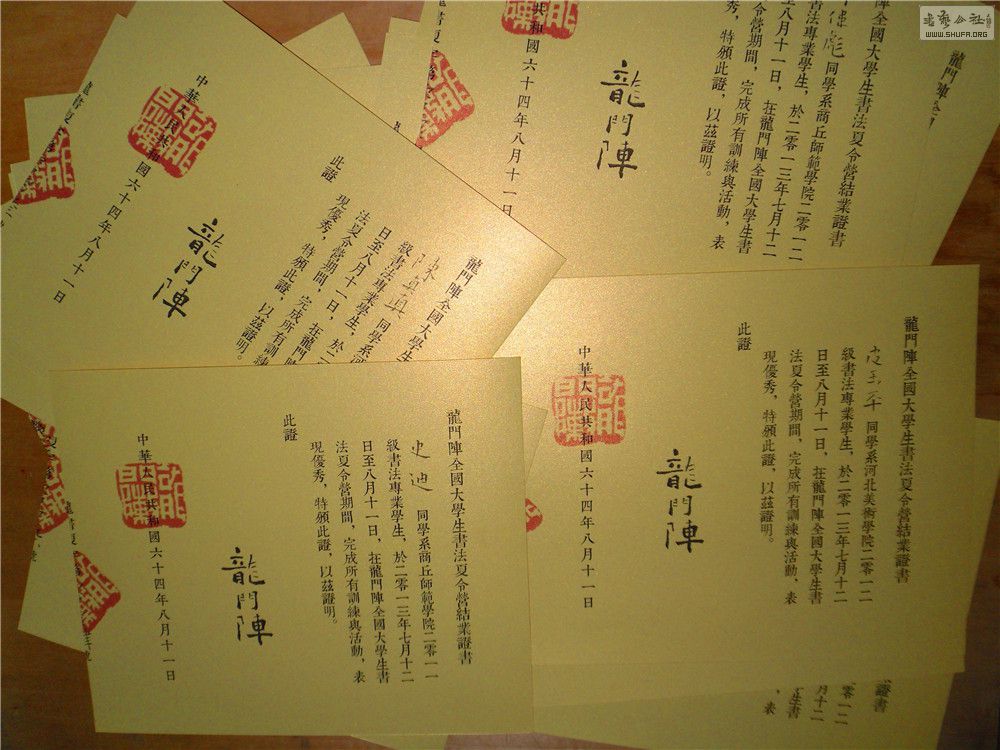 書藝公社
WWW.SHUFA.ORG
龍門陣全國大學生書法夏令營結業證書
同學系商丘師範學院二零一二
級書法專業學生，於二零一三年七月十二
日至八月十一日，在龍門陣全國大學生書
法夏令營期間，完成所有訓練與活動，表
現優秀，特頒此證，以茲證明。
龍門陣
共和國六十四年八月十一日
龍門陣全國大學生
同學系
級書法專業學生，於二
日至八月十一日，在龍門
法夏令營期間，完成所有訓
現優秀，特頒此證，以茲證明。
此證
龍門陣
中華人民共和國六十四年八月十一日
龍門陣全國大學生書法夏令營結業證書
同學系河北美術學院二零一二
級書法專業學生，於二零一三年七月十二
日至八月十一日，在龍門陣全國大學生書
法夏令營期間，完成所有訓練與活動，表
現優秀，特頒此證，以茲證明。
此證
龍門陣
中華人民共和國六十四年八月十一日
龍門陣全國大學生書法夏令營結業證書
史迪 同學系商丘師範學院二零一一
級書法專業學生，於二零一三年七月十二
日至八月十一日，在龍門陣全國大學生書
法夏令營期間，完成所有訓練與活動，表
現優秀，特頒此證，以茲證明。
此證
龍門陣
中華人民共和國六十四年八月十一日
龍門陣全
業證書